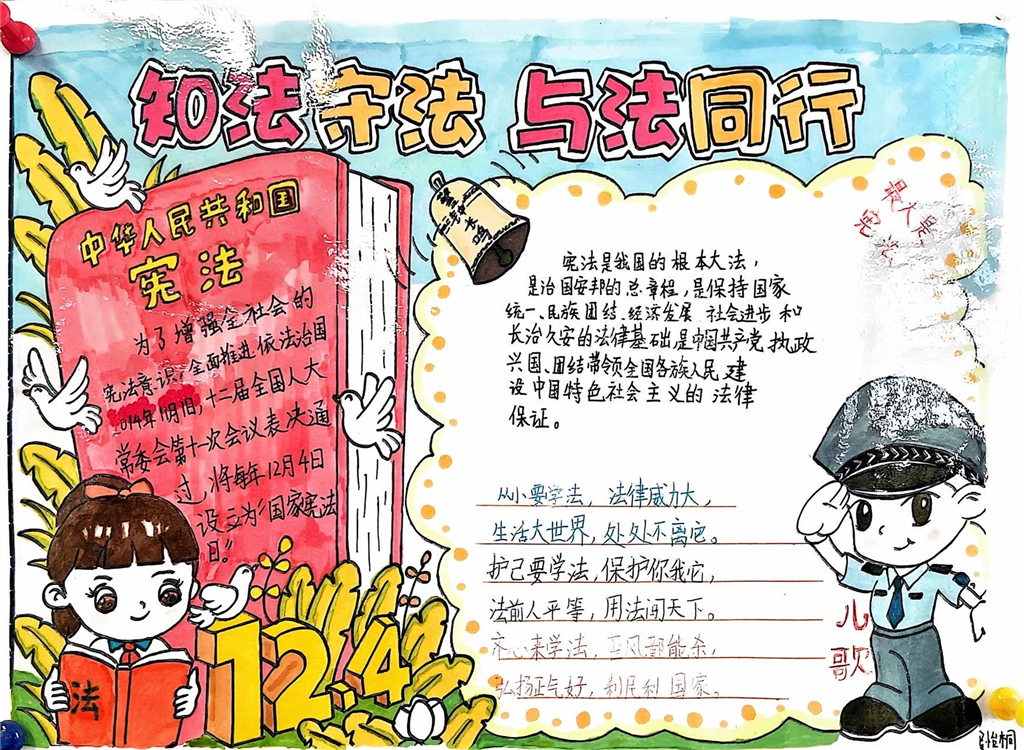 知法守法 与法同行
中华人民共和国
宪法
为了增强全社会的
宪法意识,全面推进依法治国
014年11月1日,十二届全国人大
常委会第十一次会议表决通
过,将每年12月4日
设立为“国家宪法
日。”
长鸣
宪法是我国的根本大法,
是治国安邦的总章程,是保持国家
统一、民族团结、经济发展 社会进步和
长治久安的法律基础,是中国共产党执政
兴国、团结带领全国各族人民建
设中国特色社会主义的法律
保证。
从小要学法,法律威力大,
生活大世界,处处不离它。
护己要学法,保护你我它,
法前人平等,用法闯天下。
齐心来学法,歪风都能杀,
弘扬正气好,利民利国家。
儿歌
法
12.4